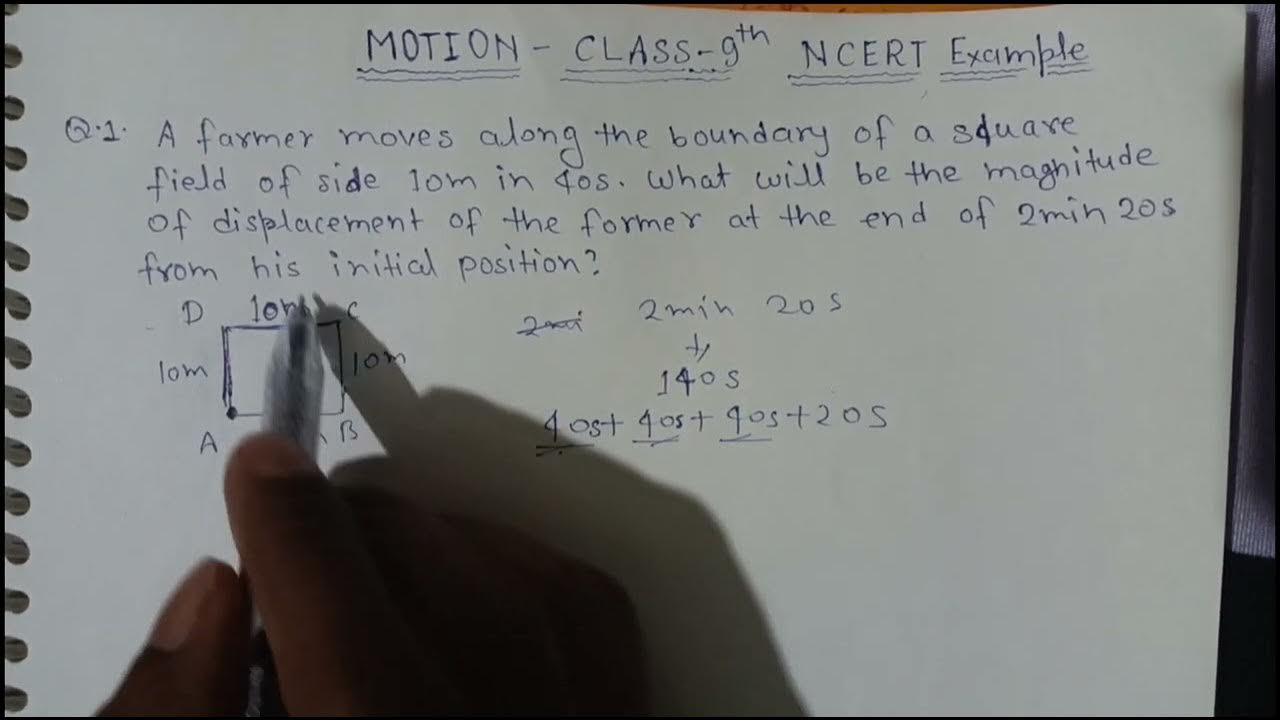 MOTION - CLASS-9th NCERT Example
Q.1. A farmer moves along the boundary of a square
field of side 10m in 40s. What will be the magnitude
of displacement of the former at the end of 2min 20s
from his initial position?
D 10m C
2min 20s
10m 10m
140s
A B
40s+ 40s+ 40s+20s